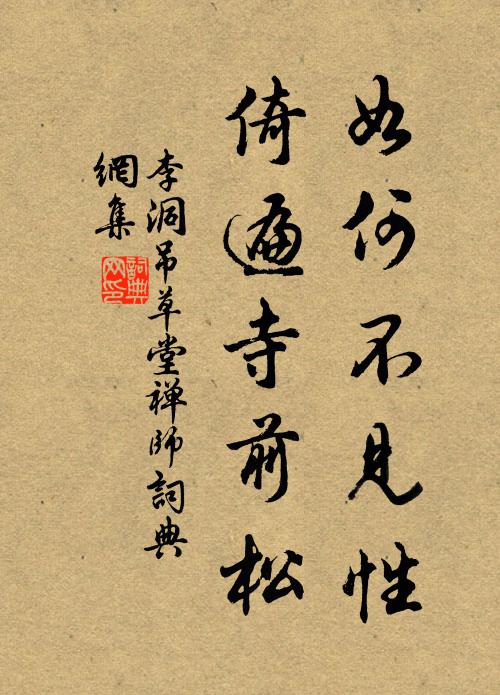 如何不見性
倚遍寺前松
李洞吊草堂禅師詞典
網集
詞典
网印